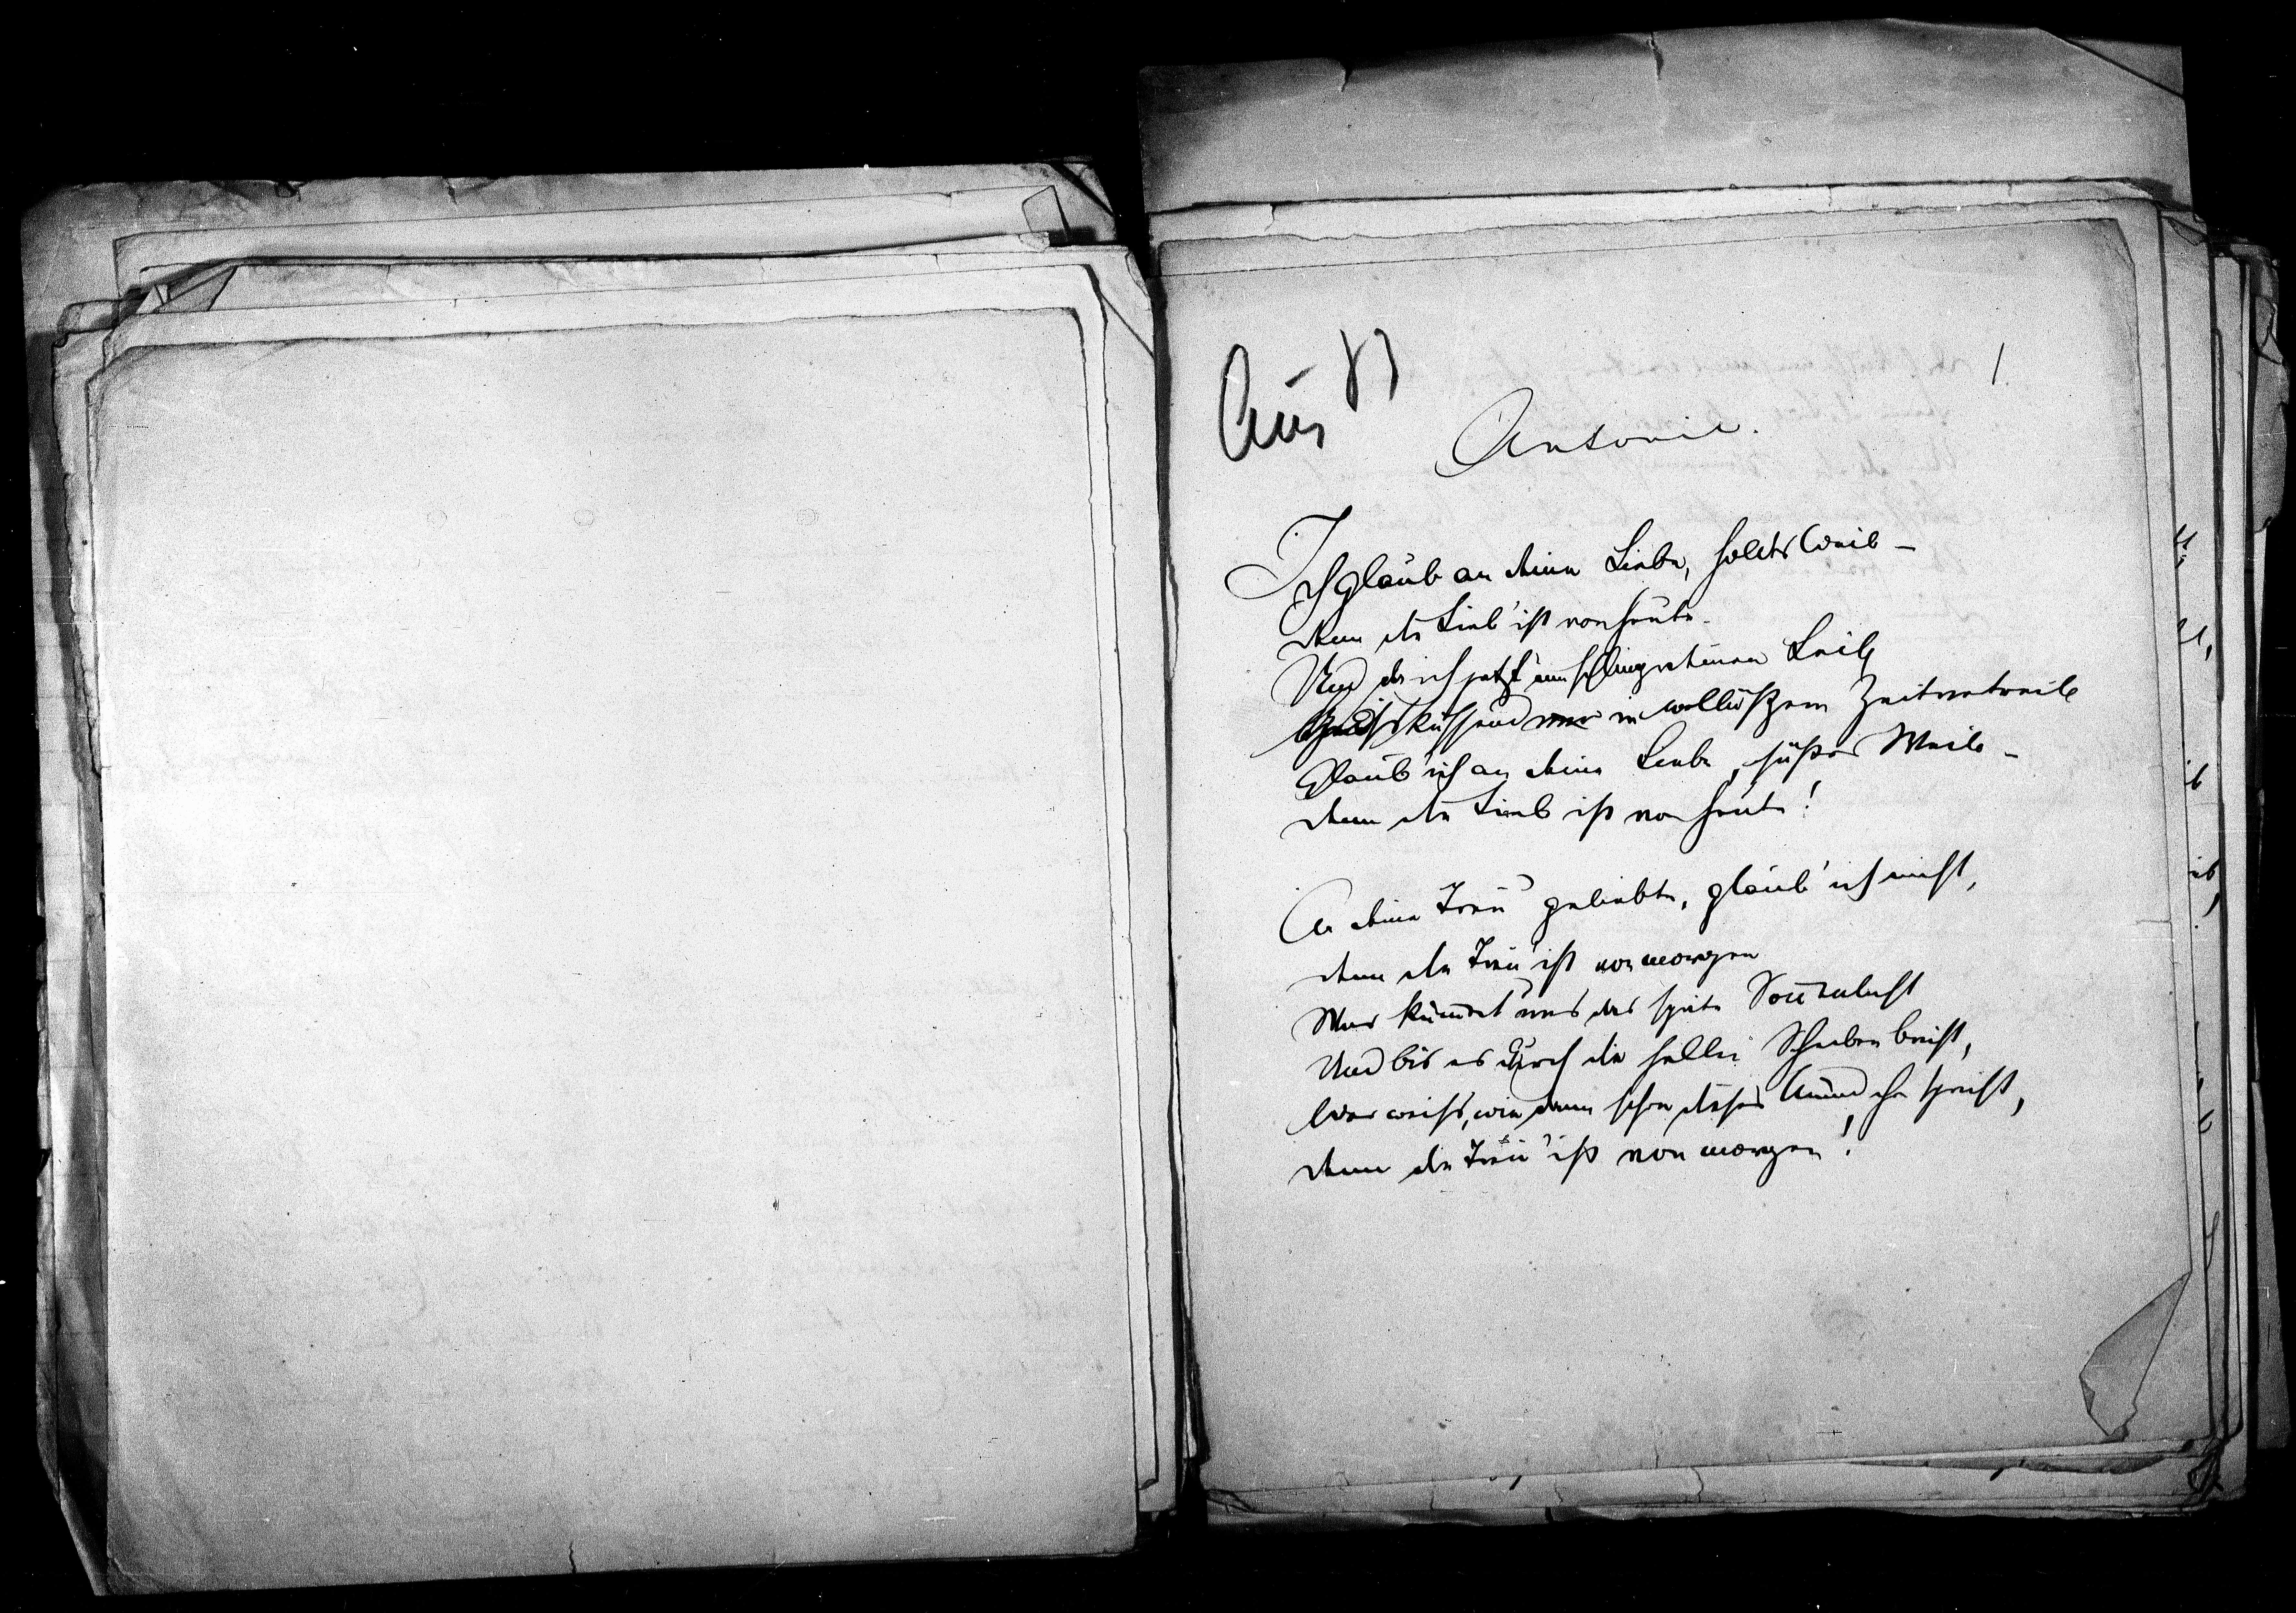 Aus 83
1.
Antonie.
Ich glaub an deine Liebe, holdes Weib –
denn die Lieb' ist von heute.
Und der ich jetzt umschlinge deinen Leib
küssend in wollüst'gem Zeitvertreib
Glaub' ich an deine Liebe, süßes Weib –
denn die Lieb ist von heute!
An deine Treu' geliebte, glaub' ich nicht,
denn die Treu' ist von morgen
Was kümmert uns das späte Sonnenlicht
Und bis es durch die hellen Scheiben bricht,
Wer weiß, wie dann schon dieser Mund dir spricht,
denn die Treu' ist von morgen!